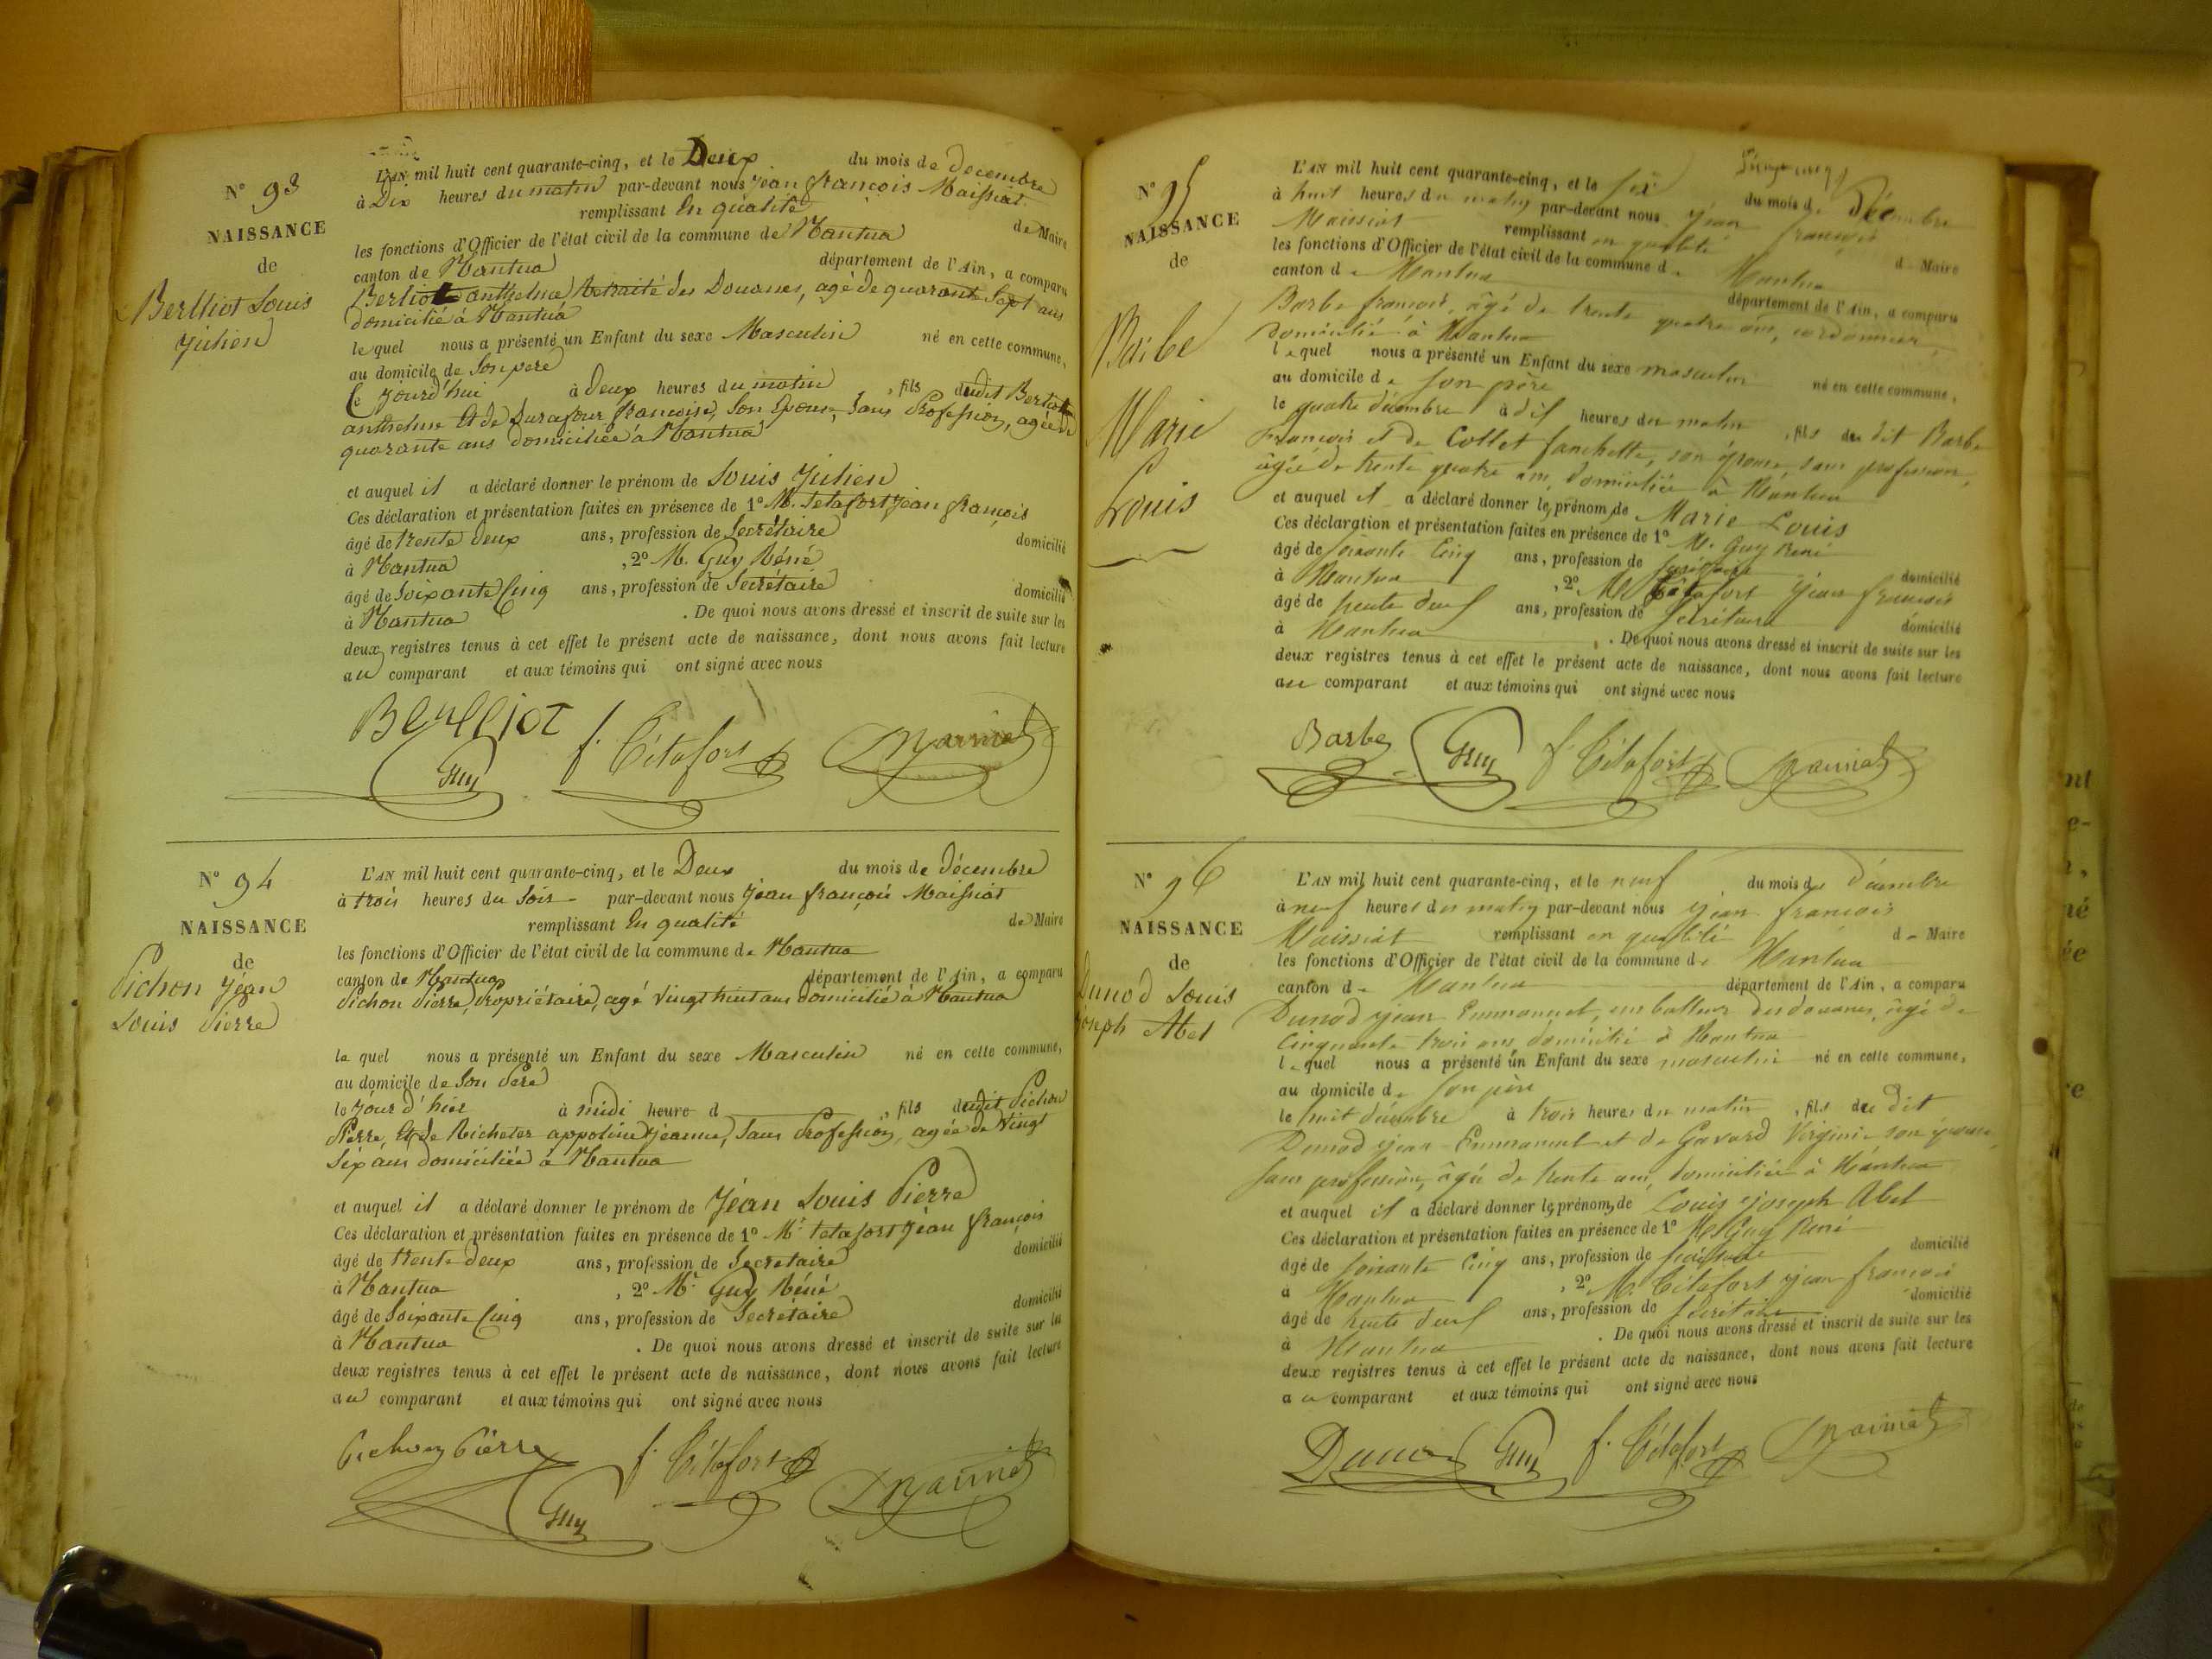 N° 93
NAISSANCE
de
Berlliot Louis
Julien
L'AN mil huit cent quarante-cinq, et le Deux du mois de décembre
à Dix heures du matin par-devant nous Jean françois Maissiat
remplissant En qualité de Maire
les fonctions d'Officier de l'état civil de la commune de Nantua
canton de Nantua département de l'Ain, a comparu
Berliot anthelme Retraité des Douanes, agé de quarante Sept ans
domicilié à Nantua
le quel nous a présenté un Enfant du sexe Masculin né en cette commune,
au domicile de Son pere
le jourd'hui à Deux heures du matin, fils dudit Berliot
anthelme Et de Durafour françoise, Son Epouse, Sans Profession, agée de
quarante ans domiciliée à Nantua
et auquel il a déclaré donner le prénom de Louis Julien
Ces déclaration et présentation faites en présence de 1° M. Tetafort Jean françois
âgé de trente deux ans, profession de Secrétaire domicilié
à Nantua, 2° M. Guy Réné
âgé de Soixante Cinq ans, profession de Secrétaire domicilié
à Nantua. De quoi nous avons dressé et inscrit de suite sur les
deux registres tenus à cet effet le présent acte de naissance, dont nous avons fait lecture
au comparant et aux témoins qui ont signé avec nous
Berlliot
Guy f. Tétafort Maissiat
N° 94
NAISSANCE
de
Pichon Jean
Louis Pierre
L'AN mil huit cent quarante-cinq, et le Deux du mois de décembre
à trois heures du Soir par-devant nous Jean françois Maissiat
remplissant En qualité de Maire
les fonctions d'Officier de l'état civil de la commune de Nantua
canton de Nantua département de l'Ain, a comparu
Pichon Pierre, Propriétaire, agé Vingt huit ans domicilié à Nantua
le quel nous a présenté un Enfant du sexe Masculin né en cette commune,
au domicile de Son Pere
le Jour d'hier à midi heure d, fils dudit Pichon
Pierre, Et de Richeter appoline jeanne, Sans Profession, agée de Vingt
Six ans domiciliée à Nantua
et auquel il a déclaré donner le prénom de Jean Louis Pierre
Ces déclaration et présentation faites en présence de 1° Mr. Tetafort Jean françois
âgé de trente deux ans, profession de Secretaire domicilié
à Nantua, 2° Mr. Guy Réné
âgé de Soixante Cinq ans, profession de Secrétaire domicilié
à Nantua. De quoi nous avons dressé et inscrit de suite sur les
deux registres tenus à cet effet le présent acte de naissance, dont nous avons fait lecture
au comparant et aux témoins qui ont signé avec nous
Pichon Pierre
Guy f. Tétafort Maissiat
N° 95
NAISSANCE
de
Barbe
Marie
Louis
L'AN mil huit cent quarante-cinq, et le six du mois de décembre
à huit heures du matin par-devant nous Jean françois
Maissiat remplissant en qualité de Maire
les fonctions d'Officier de l'état civil de la commune de Nantua
canton de Nantua département de l'Ain, a comparu
Barbe françois, âgé de trente quatre ans, cordonnier,
domicilié à Nantua
lequel nous a présenté un Enfant du sexe masculin né en cette commune,
au domicile de son père
le quatre décembre à dix heures du matin, fils du dit Barbe
françois et de Collet fanchette, son épouse sans profession,
âgée de trente quatre ans, domiciliée à Nantua
et auquel il a déclaré donner les prénoms de Marie Louis
Ces déclaration et présentation faites en présence de 1° M. Guy René
âgé de soixante cinq ans, profession de secrétaire domicilié
à Nantua, 2° M. Tétafort Jean françois
âgé de trente deux ans, profession de secrétaire domicilié
à Nantua. De quoi nous avons dressé et inscrit de suite sur les
deux registres tenus à cet effet le présent acte de naissance, dont nous avons fait lecture
au comparant et aux témoins qui ont signé avec nous
Barbe Guy f. Tétafort Maissiat
N° 96
NAISSANCE
de
Dunod Louis
Joseph Abel
L'AN mil huit cent quarante-cinq, et le neuf du mois de décembre
à neuf heures du matin par-devant nous Jean françois
Maissiat remplissant en qualité de Maire
les fonctions d'Officier de l'état civil de la commune de Nantua
canton de Nantua département de l'Ain, a comparu
Dunod Jean Emmanuel, emballeur des douanes, âgé de
cinquante trois ans, domicilié à Nantua
lequel nous a présenté un Enfant du sexe masculin né en cette commune,
au domicile de son père
le huit décembre à trois heures du matin, fils du dit
Dunod Jean Emmanuel et de Gavard Virginie son épouse,
sans profession, âgée de trente ans, domiciliée à Nantua
et auquel il a déclaré donner les prénoms de Louis Joseph Abel
Ces déclaration et présentation faites en présence de 1° M. Guy René
âgé de soixante cinq ans, profession de secrétaire domicilié
à Nantua, 2° M. Tétafort Jean françois
âgé de trente deux ans, profession de secrétaire domicilié
à Nantua. De quoi nous avons dressé et inscrit de suite sur les
deux registres tenus à cet effet le présent acte de naissance, dont nous avons fait lecture
au comparant et aux témoins qui ont signé avec nous
Dunod Guy f. Tétafort Maissiat